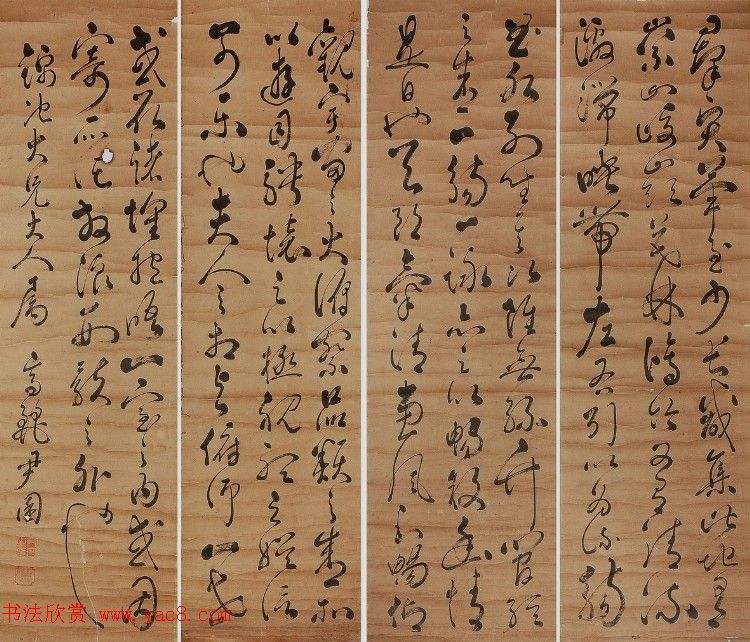 群賢畢至少長咸集此地有
崇山峻嶺茂林脩竹又有清流
激湍映帶左右引以為流觴
曲水列坐其次雖無絲竹管絃
之盛一觴一詠亦足以暢敘幽情
是日也天朗氣清惠風和暢仰
觀宇宙之大俯察品類之盛所
以遊目騁懷足以極視聽之娛信
可樂也夫人之相與俯仰一世
或取諸懷抱晤一室之內或因
寄所託放浪形骸之外
池大兄大人屬 尹圖
书法欣赏 www.yac8.com